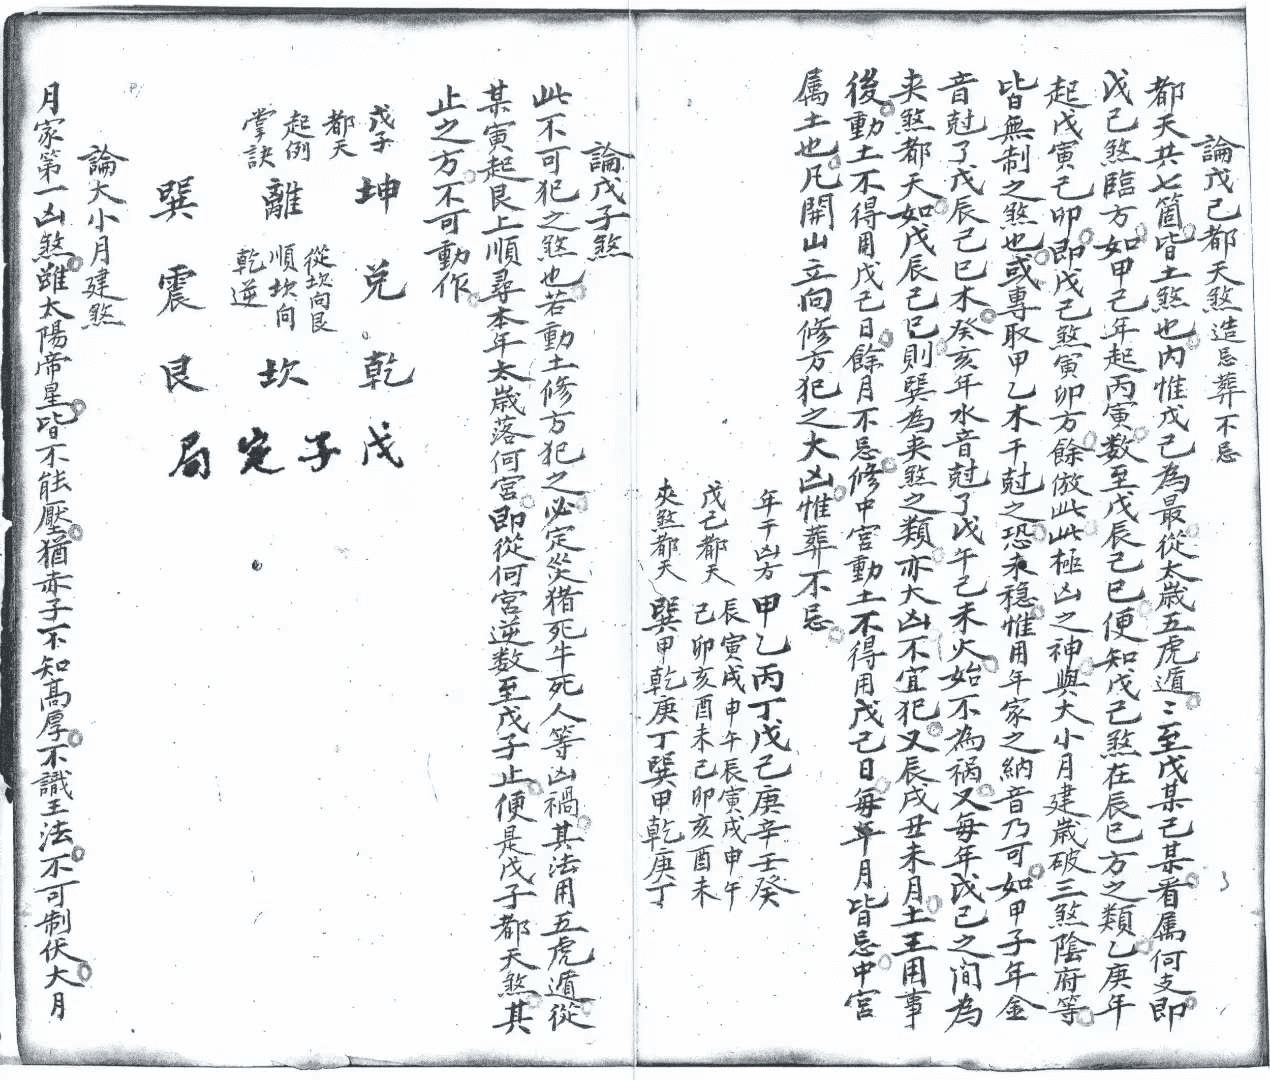 論戊己都天煞造忌葬不忌
都天共七箇皆土煞也內惟戊己為最從太歲五虎遁〻至戊某己某看属何支即
戊己煞臨方如甲己年起丙寅数至戊辰己巳便知戊己煞在辰巳方之類乙庚年
起戊寅己卯即戊己煞寅卯方餘倣此此極凶之神與大小月建歲破三煞陰府等
皆無制之煞也或專取甲乙木干尅之恐未穏惟用年家之納音乃可如甲子年金
音尅了戊辰己巳木癸亥年水音尅了戊午己未火始不為禍又每年戊己之间為
夹煞都天如戊辰己巳則巽為夹煞之類亦大凶不宜犯又辰戌丑未月土王用事
後動土不得用戊己日餘月不忌修中宮動土不得用戊己日每年月皆忌中宮
属土也凡開山立向修方犯之大凶惟葬不忌
年干凶方 甲乙丙丁戊己庚辛壬癸
戊己都天 辰寅戌申午辰寅戌申午
己卯亥酉未己卯亥酉未
夾煞都天 巽甲乾庚丁巽甲乾庚丁
論戊子煞
此不可犯之煞也若動土修方犯之必定災猪死牛死人等凶禍其法用五虎遁從
某寅起艮上順尋本年太歲落何宮即從何宮逆数至戊子止便是戊子都天煞其
止之方不可動作
戊子
都天
起例
掌訣
坤 兌 乾 戊
離 從坎向艮
順坎向
乾逆
坎 子 定
巽 震 艮 局
論大小月建煞
月家第一凶煞雖太陽帝星皆不能壓猶赤子不知高厚不識王法不可制伏大月